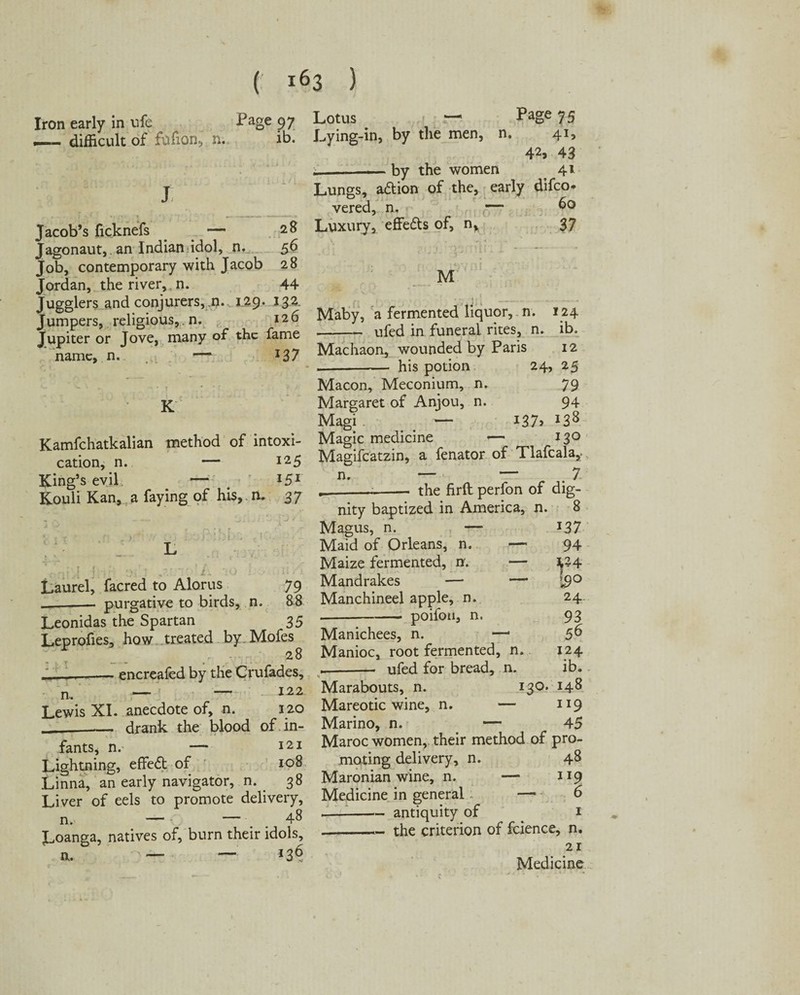 ( 163 )
Iron early in uſe Page 97
—— difficult of fuſion, n. ib.
J
Jacob's ſickneſs — 28
Jagonaut, an Indian idol, n. 56
Job, contemporary with Jacob 28
Jordan, the river, n. 44
Jugglers and conjurers, n. 129. 132
Jumpers, religious, n. 126
Jupiter or Jove, many of the ſame
name, n. — 137
K
Kamſchatkalian method of intoxi-
cation, n. — 125
King's evil — 151
Kouli Kan, a ſaying of his, n. 37
L
Laurel, ſacred to Alorus 79
—— purgative to birds, n. 88
Leonidas the Spartan 35
Leproſies, how treated by Moſes
28
—— encreaſed by the Cruſades,
n. — — 122
Lewis XI. anecdote of, n. 120
—— drank the blood of in-
fants, n. — 121
Lightning, effect of 108
Linna, an early navigator, n. 38
Liver of eels to promote delivery,
n. — — 48
Loanga, natives of, burn their idols,
n. — — 136
Lotus — Page 75
Lying-in, by the men, n. 41,
42, 43
—— by the women 41
Lungs, action of the, early diſco-
vered, n. — 60
Luxury, effects of, n, 37
M
Maby, a fermented liquor, n. 124
—— uſed in funeral rites, n. ib.
Machaon, wounded by Paris 12
—— his potion 24, 25
Macon, Meconium, n. 79
Margaret of Anjou, n. 94
Magi — 137, 138
Magic medicine — 130
Magiſcatzin, a ſenator of Tlaſcala,
n. — — 7
—— the firſt perſon of dig-
nity baptized in America, n. 8
Magus, n. — 137
Maid of Orleans, n. — 94
Maize fermented, n. — 124
Mandrakes — — 90
Manchineel apple, n. 24
—— poiſon, n. 93
Manichees, n. — 56
Manioc, root fermented, n. 124
—— uſed for bread, n. ib.
Marabouts, n. 130. 148
Mareotic wine, n. — 119
Marino, n. — 45
Maroc women, their method of pro-
moting delivery, n. 48
Maronian wine, n. — 119
Medicine in general — 6
—— antiquity of 1
—— the criterion of ſcience, n.
21
Medicine